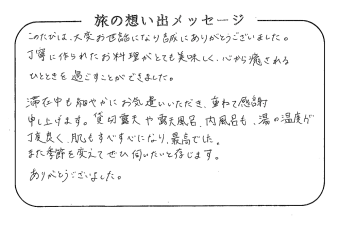 旅の想い出メッセージ
このたびは、大変お世話になり誠にありがとうございました。
丁寧に作られたお料理がとても美味しく、心から癒される
ひとときを過ごすことができました。
滞在中も細やかにお気遣いいただき、重ねて感謝
申し上げます。貸切露天や露天風呂、内風呂も、湯の温度が
丁度良く、肌もすべすべになり、最高でした。
また季節を変えてぜひ伺いたいと存じます。
ありがとうございました。